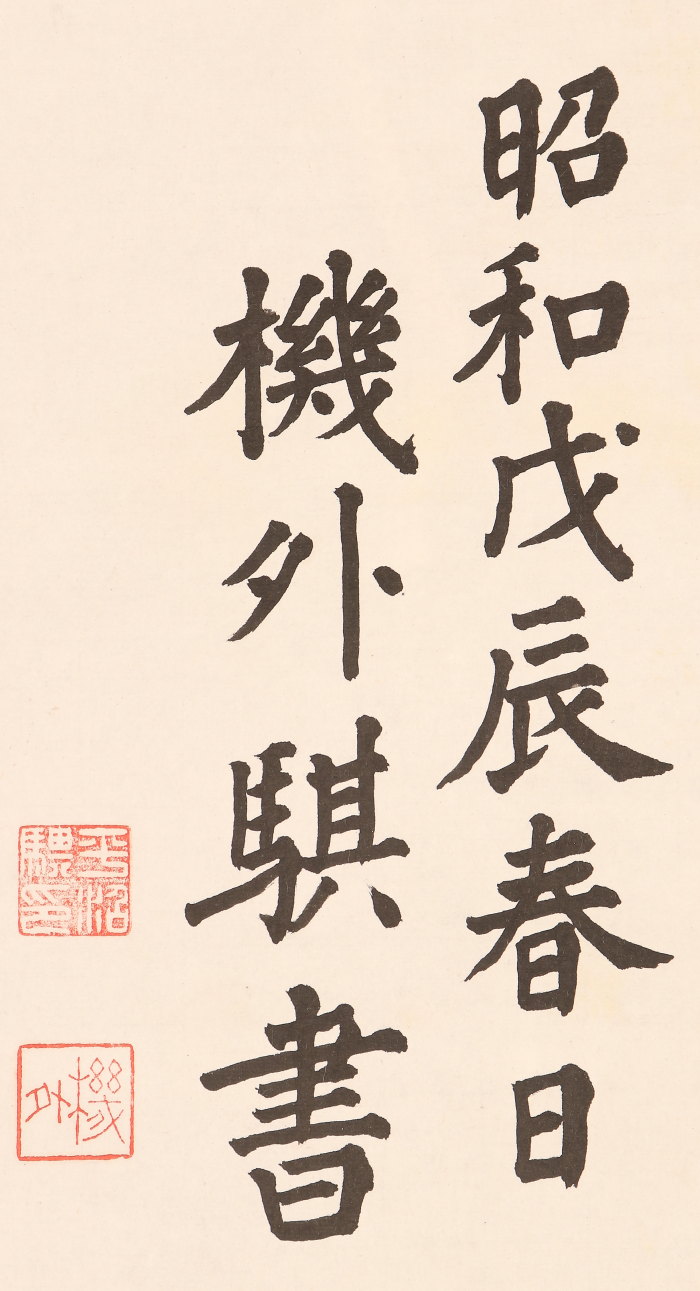 昭和戊辰春日
機外騏書
機外